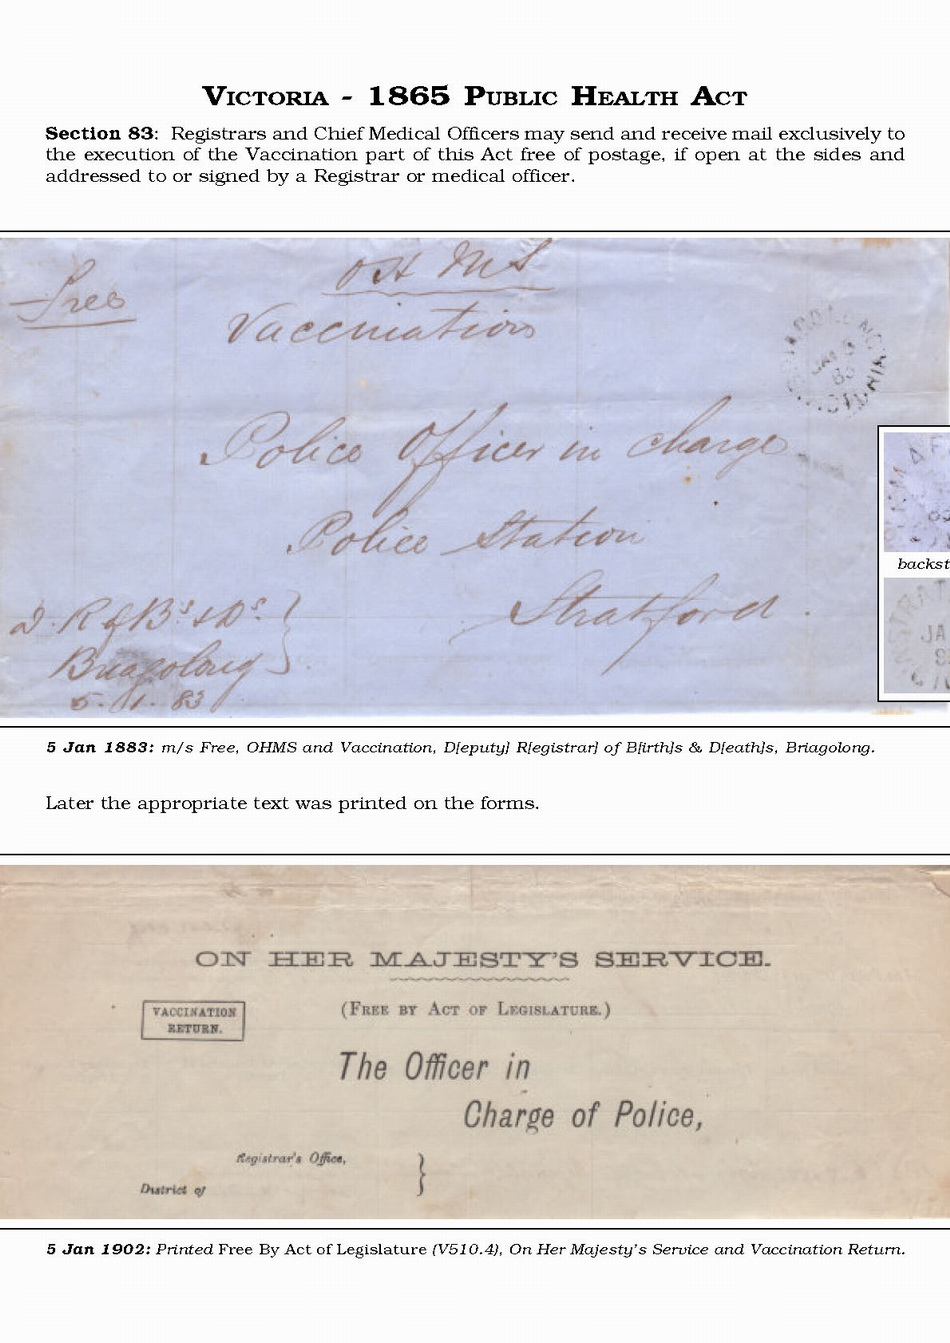 VICTORIA - 1865 PUBLIC HEALTH ACT
Section 83: Registrars and Chief Medical Officers may send and receive mail exclusively to
the execution of the Vaccination part of this Act free of postage, if open at the sides and
addressed to or signed by a Registrar or medical officer.
O H M S
Free
Vaccination
JA
83
VICTORIA
Police Officer in charge
Police Station
Stratford.
D. R of B's & D's.
Briagolong
5. 1. 83
backst
JA
5 Jan 1883: m/s Free, OHMS and Vaccination, D[eputy] R[egistrar] of B[irth]s & D[eath]s, Briagolong.
Later the appropriate text was printed on the forms.
ON HER MAJESTY'S SERVICE.
(FREE BY ACT OF LEGISLATURE.)
VACCINATION
RETURN.
The Officer in
Charge of Police,
Registrar's Office,
District of
5 Jan 1902: Printed Free By Act of Legislature (V510.4), On Her Majesty's Service and Vaccination Return.